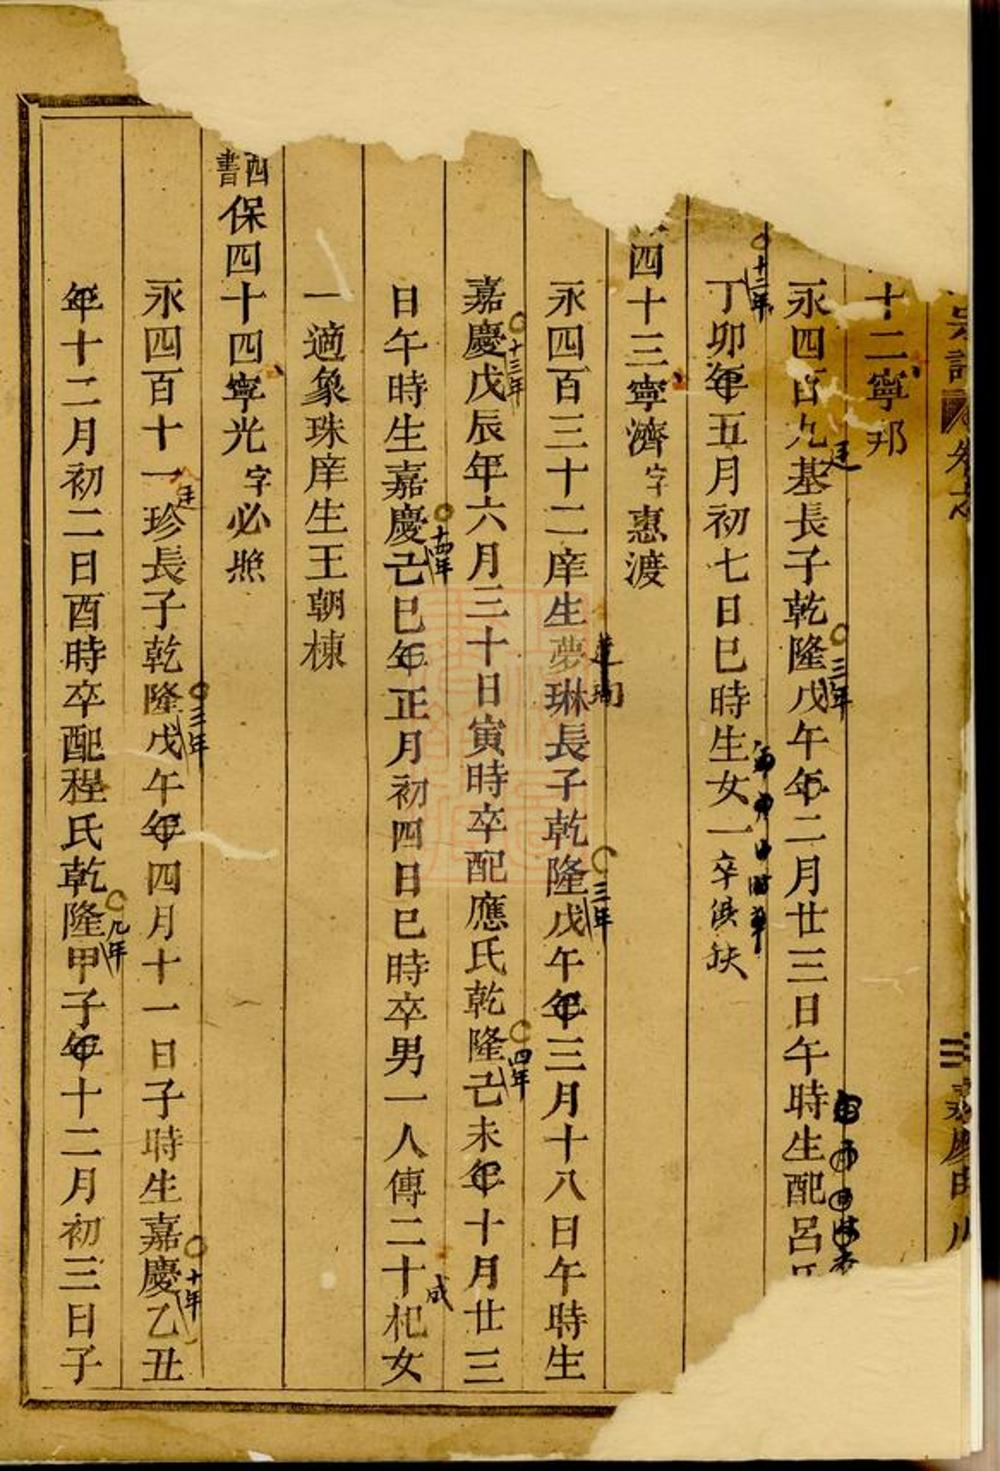 十二寧邦
永四百九基長子乾隆戊午年二月廿三日午時生配呂氏
丁卯年五月初七日巳時生女一卒俱缺
四十三寧濟字惠渡
永四百三十二庠生夢琳長子乾隆戊午年三月十八日午時生
嘉慶戊辰年六月三十日寅時卒配應氏乾隆己未年十月廿三
日午時生嘉慶己巳年正月初四日巳時卒男一人傳二十杞女
一適象珠庠生王朝棟
四書保四十四寧光字必照
永四百十一珍長子乾隆戊午年四月十一日子時生嘉慶乙丑
年十二月初二日酉時卒配程氏乾隆甲子年十二月初三日子
廷
三年
十二年
三年
十三年
四年
十四年
成
廷
三年
十年
九年